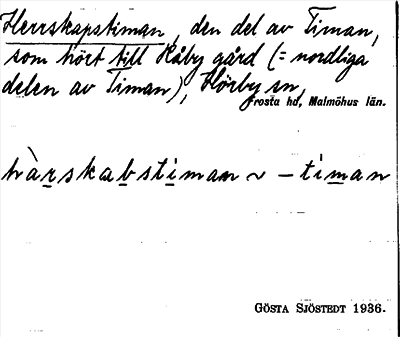 Herrskapstiman, den del av Timan,
som hört till Råby gård (= nordliga
delen av Timan), Hörby sn,
Frosta hd, Malmöhus län.
hàrskabstiman ~ -timan
GÖSTA SJÖSTEDT 1936.